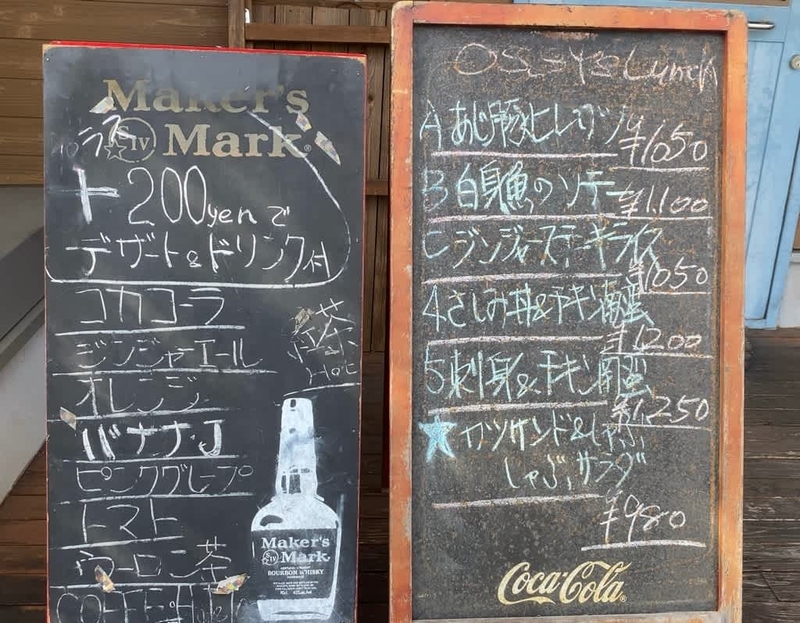 Maker's
Mark
SIV
+200yenで
デザート&ドリンク付
コカコーラ
ジンジャーエール
オレンジ
バナナ・J
ピンクグレープ
トマト
ウーロン茶
紅茶
Hot
Maker's
SIV Mark
BOURBON WHISKY
Lunch
A あじ豚ヒレカツ
¥1050
B 白身魚のソテー
¥1.100
C ジンジャーステーキライス
¥1050
4 さしみ丼&チキン南蛮
¥1200
5 刺身&チキン南蛮
¥1,250
★カツサンド&しゃぶ
しゃぶサラダ
¥980
Coca-Cola